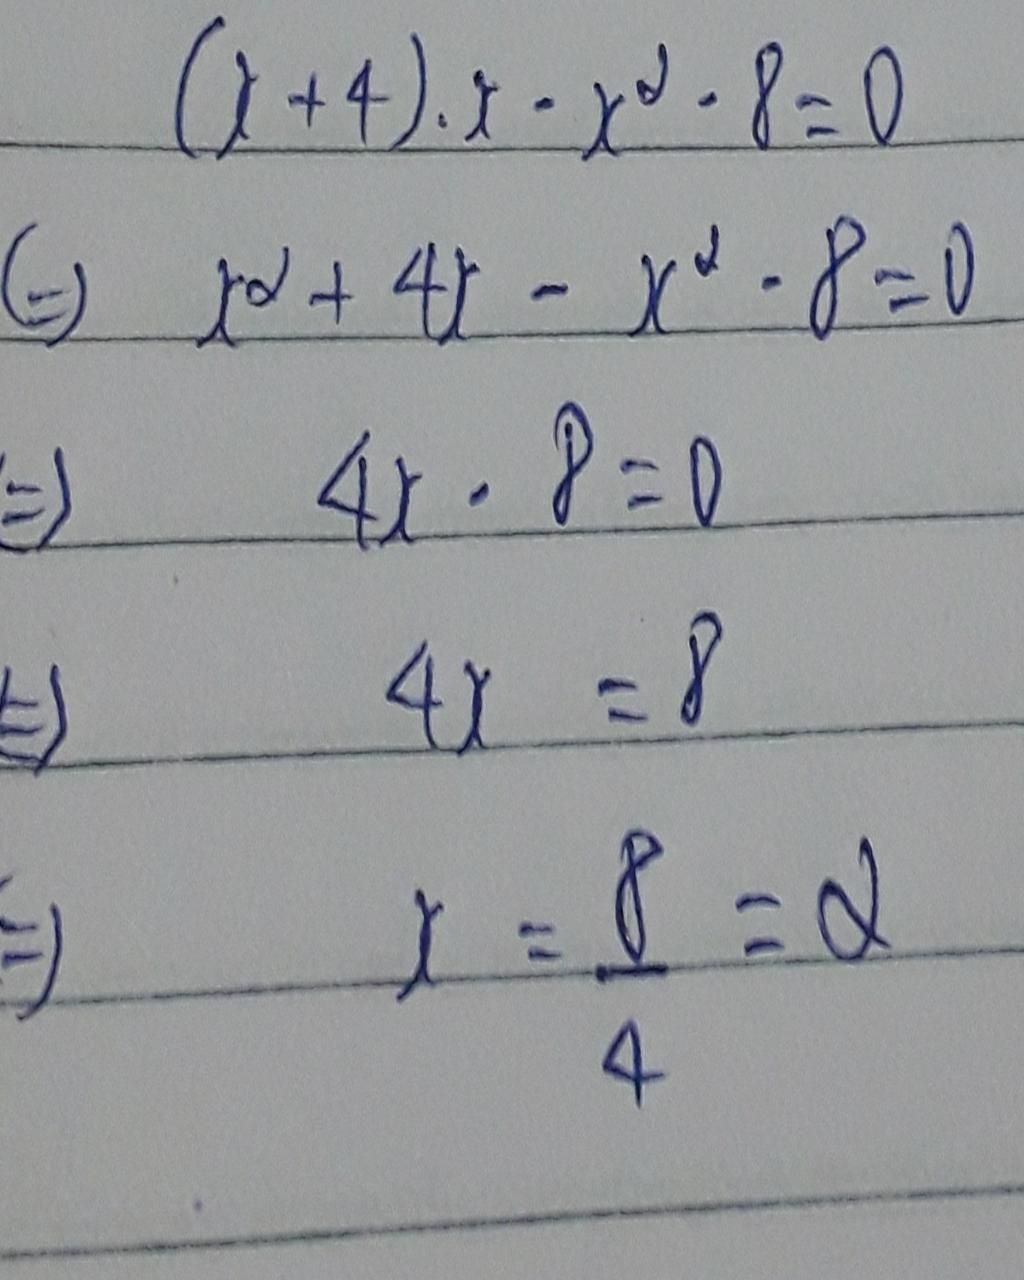 (x+4).x - x² - 8 = 0
(=) x² + 4x - x² - 8 = 0
(=) 4x - 8 = 0
(=) 4x = 8
(=) x = 8/4 = 2